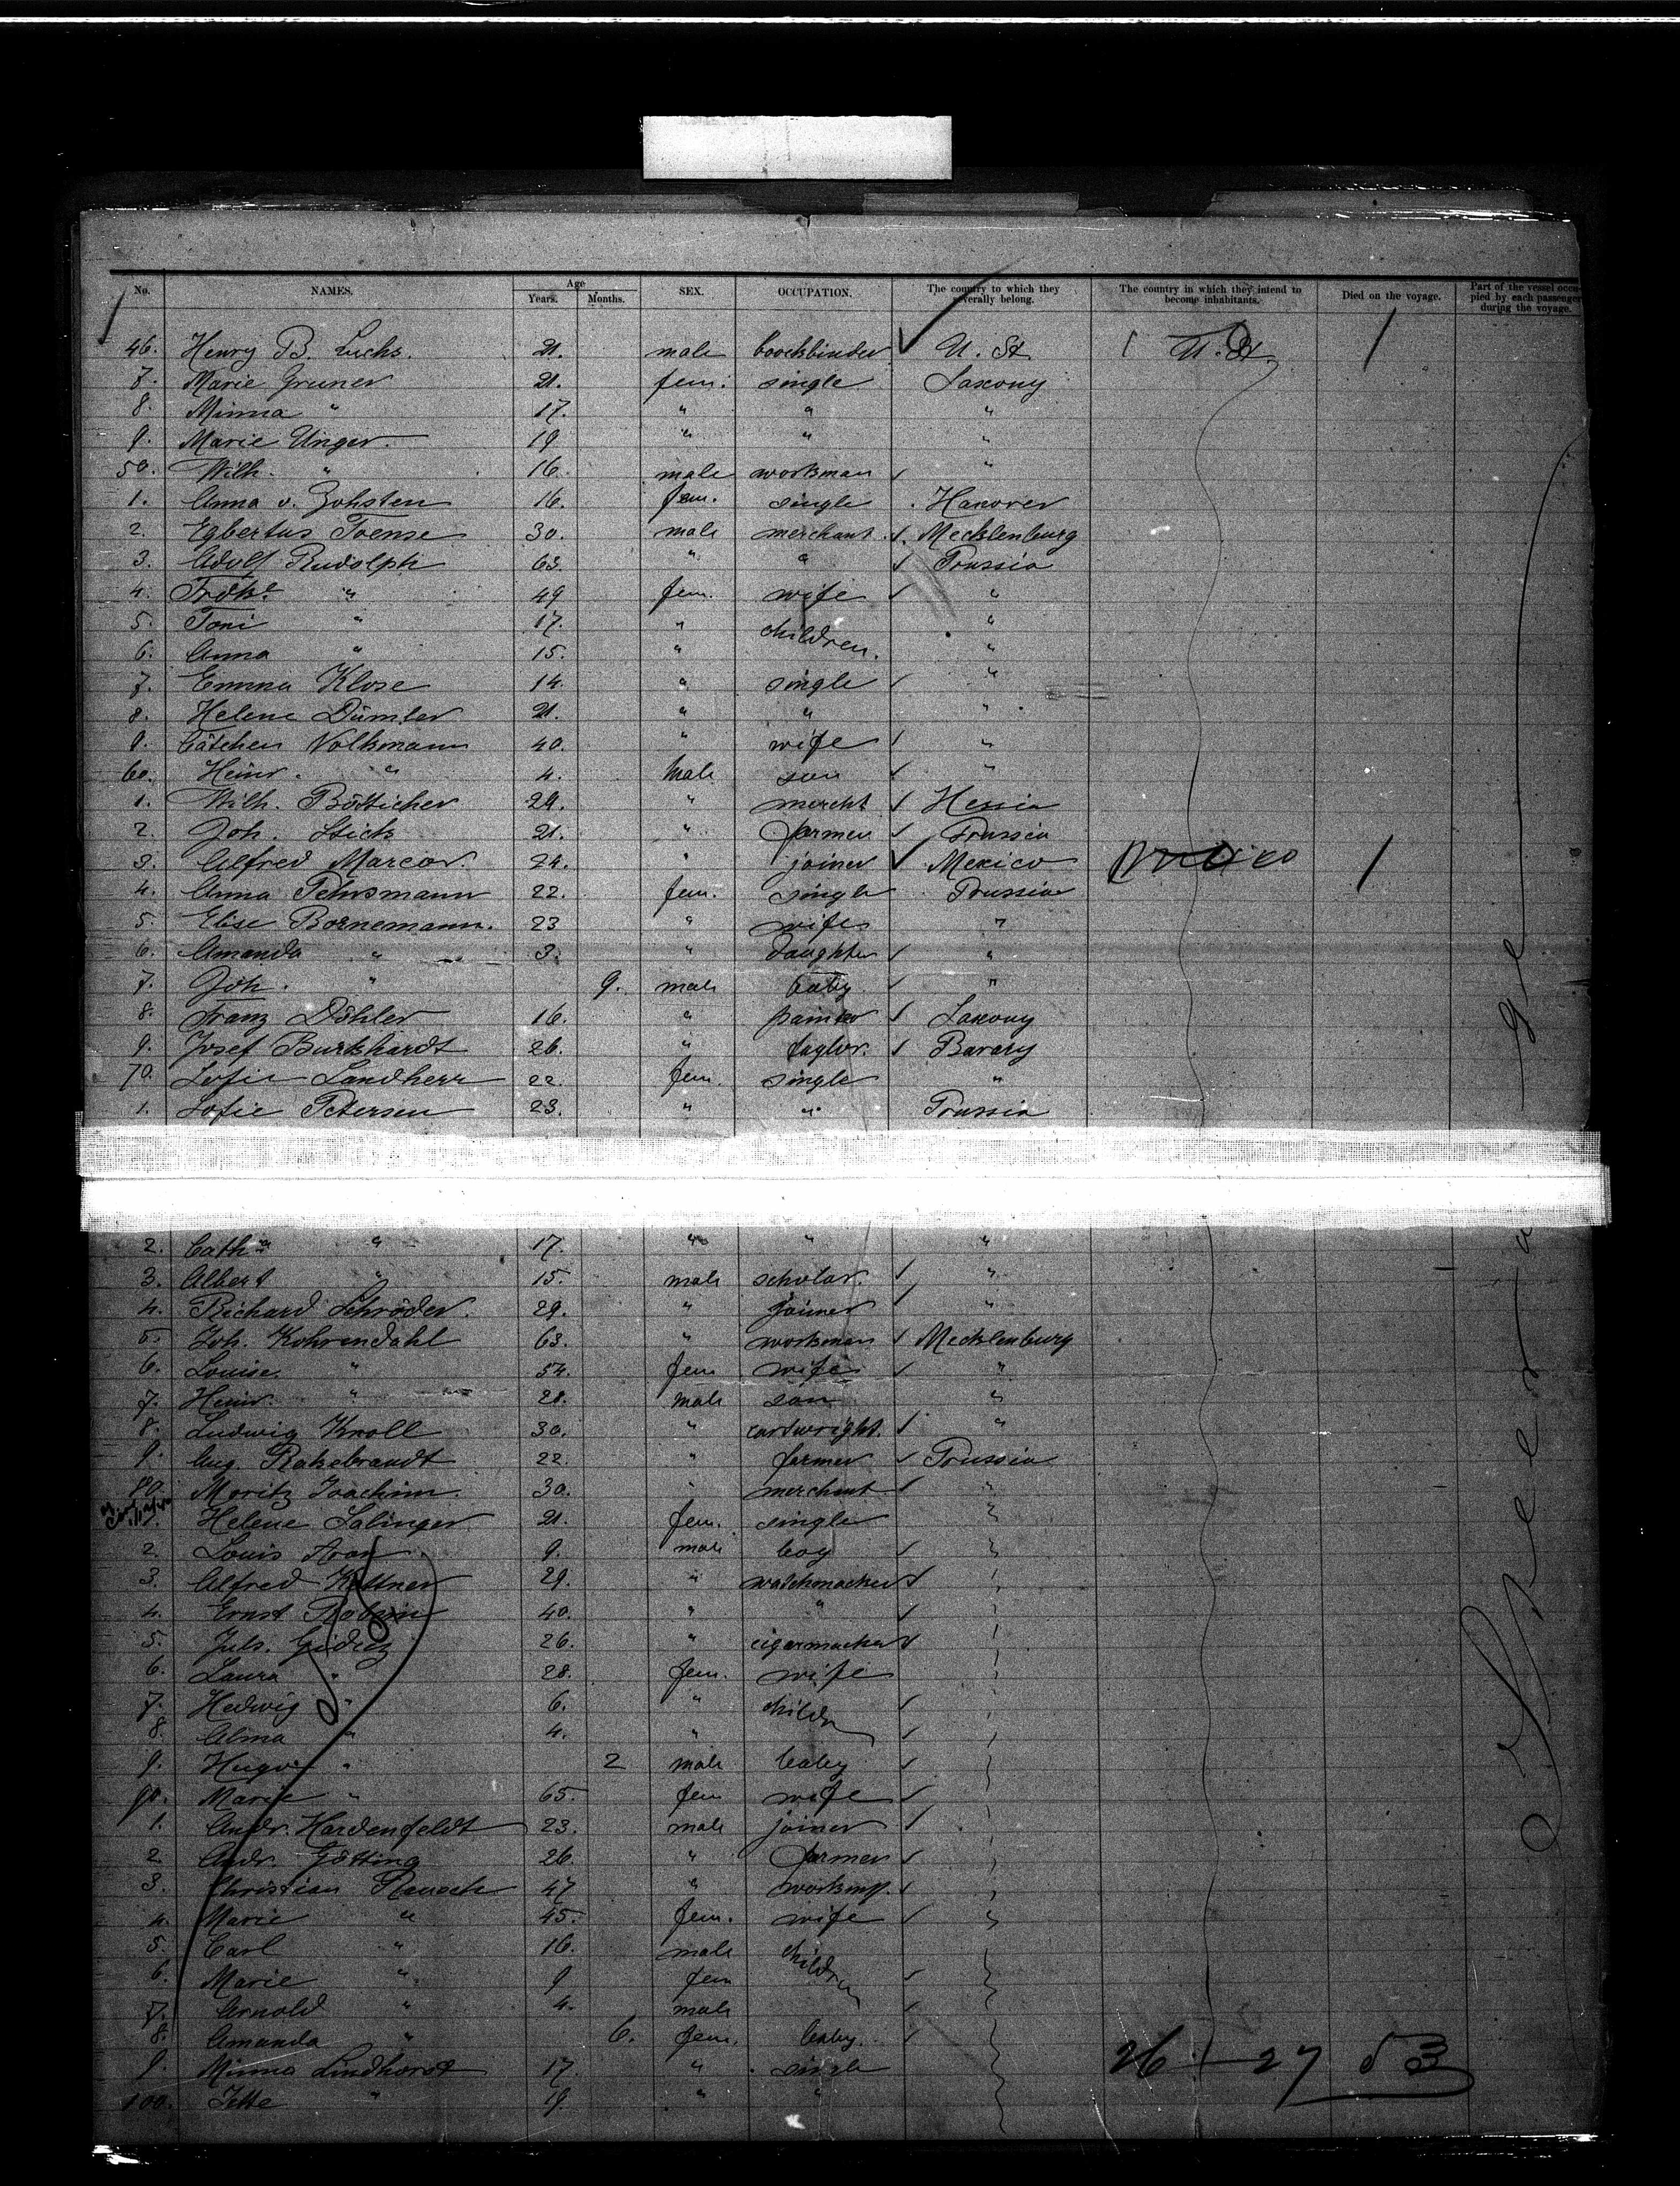 No. NAMES. Age Years. Months. SEX. OCCUPATION. The country to which they severally belong. The country in which they intend to become inhabitants. Died on the voyage. Part of the vessel occupied by each passenger during the voyage.
46. Henry B. Luchs. 21. male boockbinder U. St. U. St.
7. Marie Gruner 21. fem. single Saxony
8. Minna " 17. " " "
9. Marie Unger 19 " " "
50. Wilh. " 16. male workman "
1. Anna v. Zohsten 16. fem. single Hanover
2. Egbertus Toense 30. male merchant Mecklenburg
3. Adolf Rudolph 63. " " Prussia
4. Frdke " 49 fem. wife "
5. Toni " 17. " children. "
6. Anna " 15. " "
7. Emma Klose 14. " single "
8. Helene Dümler 21. " " "
9. Cätchen Volkmann 40. " wife "
60. Heinr. " 4. male son "
1. Wilh. Bötticher 24. " mercht Hessia
2. Joh. Stick 21. " farmer Prussia
3. Alfred Marcor 24. " joiner Mexico Mexico
4. Anna Tehrsmann 22. fem. single Prussia
5. Elise Bornemann. 23 " wife "
6. Amanda " 3. " daughter "
7. Joh. " 9. male baby "
8. Franz Döhler 16. " painter Saxony
9. Josef Burkhardt 26. " taylor. Bavary
70. Sofie Landherr 22. fem. single "
1. Sofie Petersen 23. " " Prussia
2. Catha " 17. " " "
3. Albert " 15. male scholar. "
4. Richard Schröder. 29. " joiner "
5. Joh. Kohrendahl 63. " workman Mecklenburg
6. Louise. " 54. fem wife "
7. Heinr. " 28. male son "
8. Ludwig Kroll 30. " cartwright. "
9. Aug. Rakebrandt 22. " farmer Prussia
80. Moritz Joachim. 30. " merchant "
Helene Salinger 21. fem. single "
2. Louis Aron 9. male boy "
3. Alfred Kettner 29. " watchmacker "
4. Ernst 40. " " "
5. Juls. 26. " cigarmacker "
6. Laura " 28. fem. wife
7. Hedwig " 6. " childr
8. Alma " 4. "
9. Hugo " 2 male baby
90. Marie " 65. fem wife
1. Andr. Hardenfeldt 23. male joiner
2 Andr. Götting 26. " farmer
3. Christian Rausch 47 " workm.
4. Marie " 45. fem. wife
5. Carl " 16. male children
6. Marie " 9 fem
7. Arnold " 4. male
8. Amanda " 6. fem. baby.
9. Minna Lindhorst 17. " single
100. Jette " 19. " "
26 - 27 53